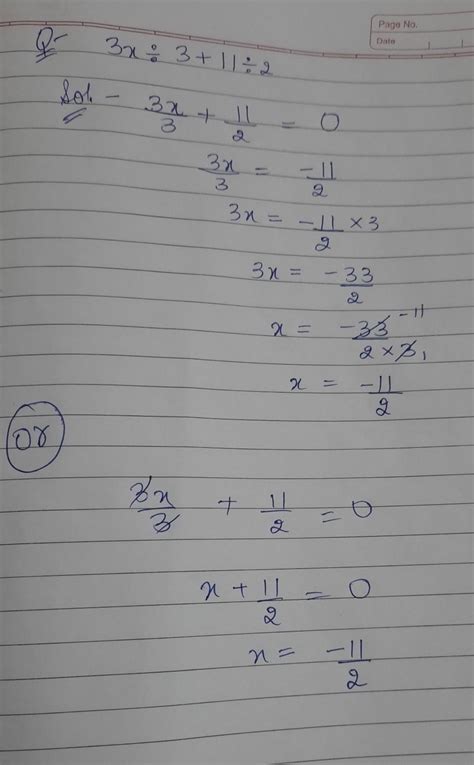 Page No.
Date
Q- 3x ÷ 3 + 11 ÷ 2
Sol. - 3x/3 + 11/2 = 0
3x/3 = -11/2
3x = -11/2 × 3
3x = -33/2
x = -33/2×3 -11 1
x = -11/2
or
3x/3 + 11/2 = 0
x + 11/2 = 0
x = -11/2